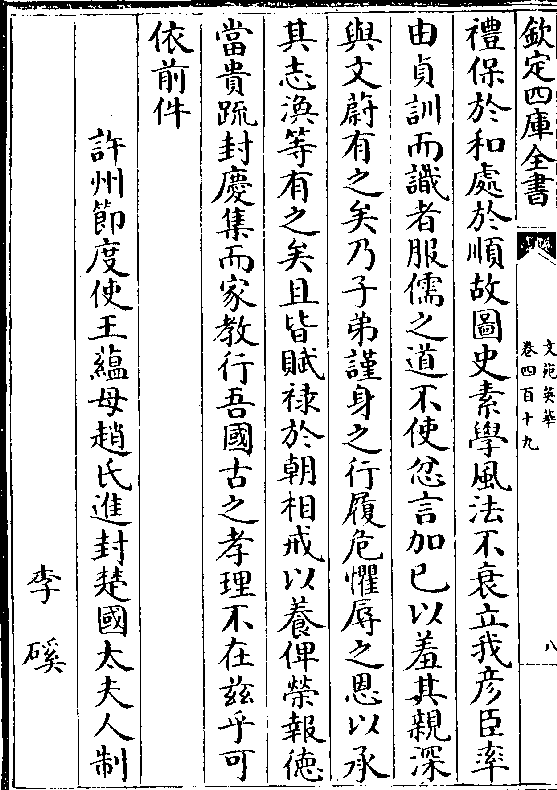 欽定四庫全書
文苑英華
卷四百十九
八
禮保於和處於順故圖史素學風法不衰立我彦臣率
由貞訓而識者服儒之道不使忿言加已以羞其親深
與文蔚有之矣乃子弟謹身之行履危懼辱之恩以承
其志渙等有之矣且皆賦祿於朝相戒以養俾榮報徳
當貴疏封慶集而家教行吾國古之孝理不在兹乎可
依前件
許州節度使王藴母趙氏進封楚國太夫人制
李磎